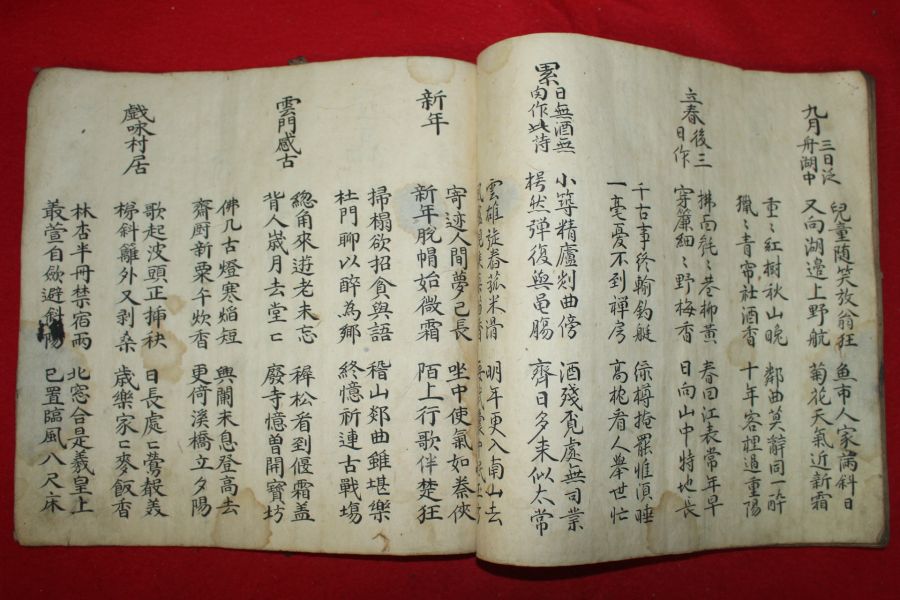 九月三日泛舟湖中
兒童随笑放翁狂 魚市人家满斜日
又向湖邊上野航 菊花天氣近新霜
重〻紅樹秋山晚 鄰曲莫辭同一酔
獵〻青帘社酒香 十年客裡過重陽
立春後三日作
拂面毿〻巷柳黄 春回江表常年早
穿簾細〻野梅香 日向山中特地長
千古事終輸釣艇 樽掩罷惟須睡
一毫憂不到禅房 高枕看人舉世忙
累日無酒無肉作此詩
小篆精廬剡曲傍 酒殘覓處無司業
枵然弹復與黽腸 齊日多来似太常
雲雄徒舂菰米滑 明年更入南山去
新年
寄迹人間夢已長 坐中使氣如秦俠
新年脫帽始微霜 陌上行歌伴楚狂
掃榻欲招貪與語 稽山郯曲雖堪樂
杜門聊以醉為鄉 終憶祈連古戰塲
雲門感古
緫角來遊老未忘 稺松看到偃霜盖
背人歲月去堂〻 廢寺憶曽開寶坊
佛几古燈寒焰短 興闌未息登高去
齋厨新粟午炊香 更倚溪橋立夕陽
戯咏村居
歌起波頭正揷秧 日長處〻鶯聲美
梯斜籬外又剥桑 歲樂家〻麥飯香
林杏半冊禁宿雨 北窓合是羲皇上
叢萱自歛避斜陽 已置臨風八尺床